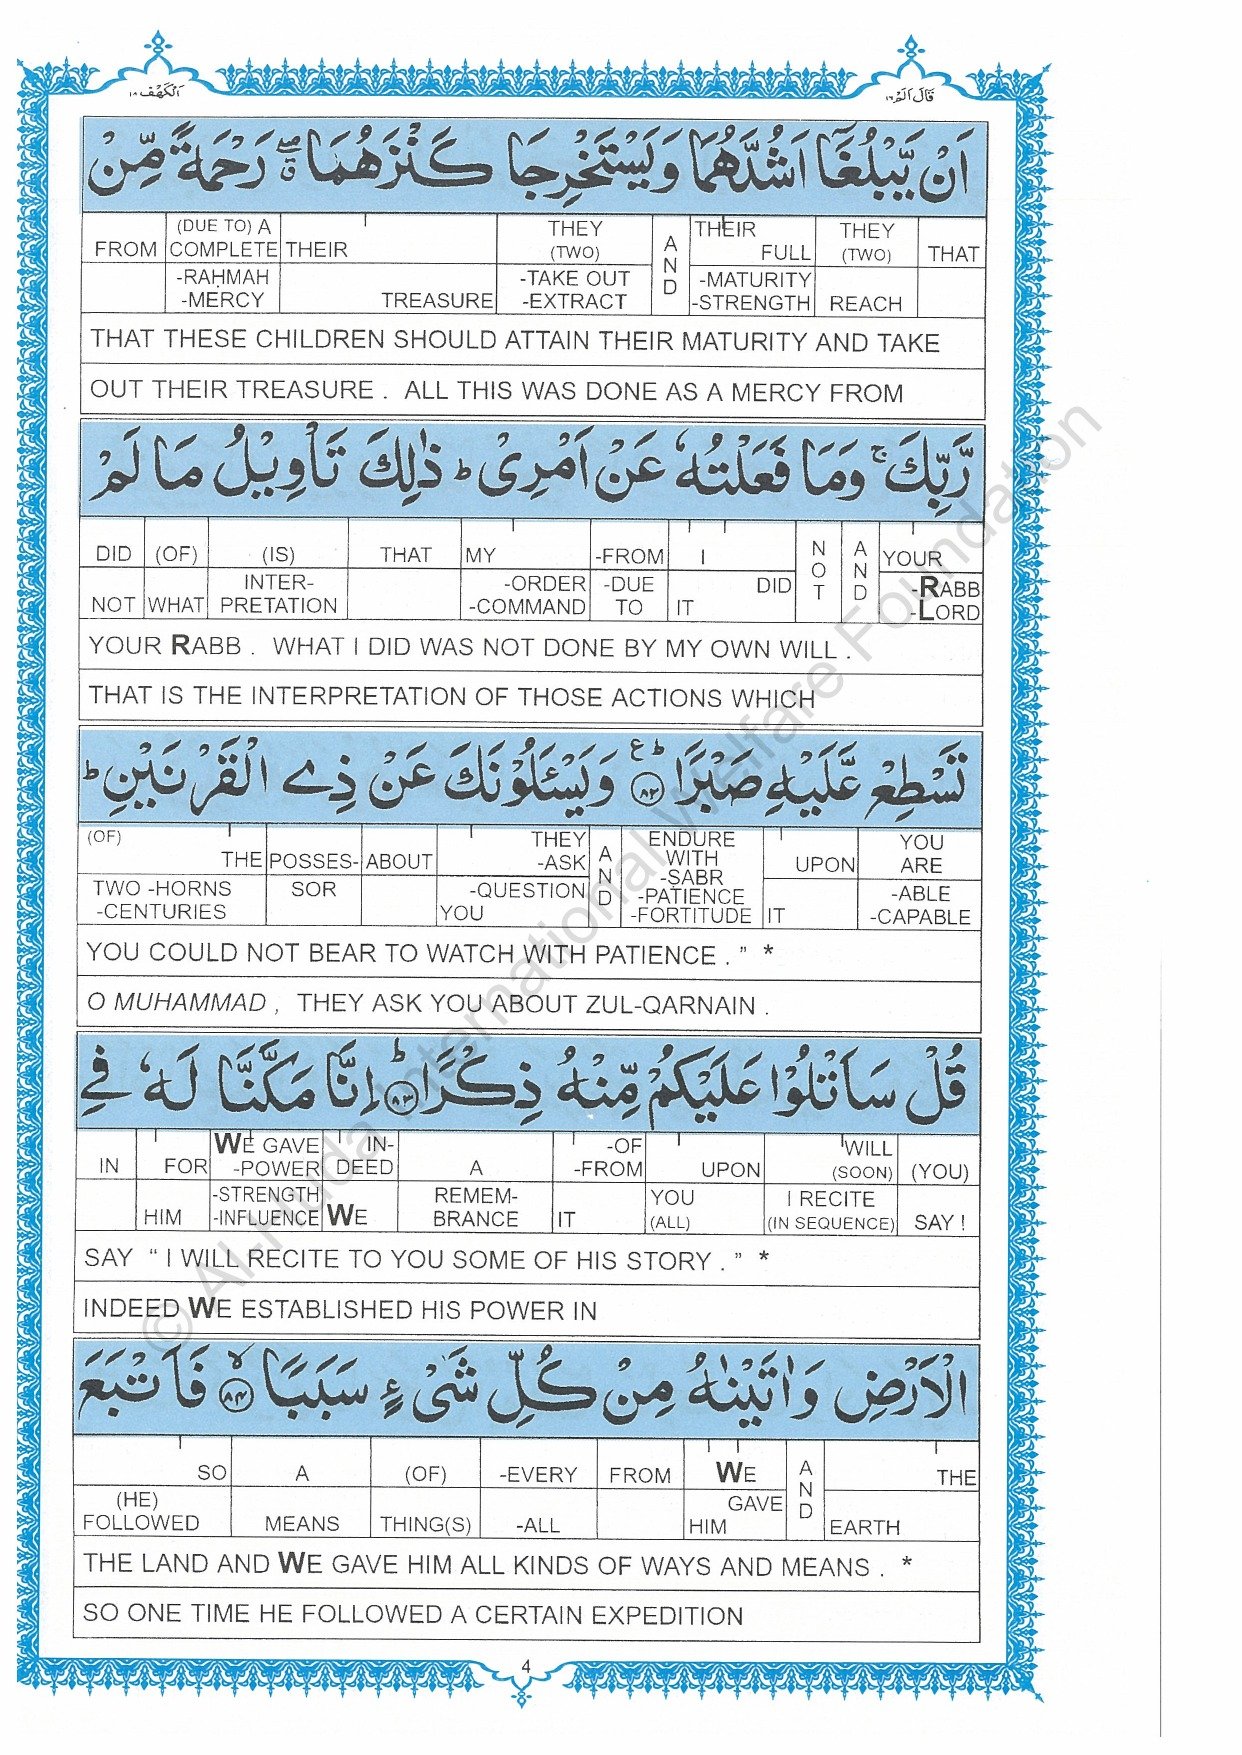 اَلْكَهْف ١٨
قَالَ اَلَمْ ١٦
اَنْ يَّبْلُغَاۤ اَشُدَّهُمَا وَيَسْتَخْرِجَا كَنْزَهُمَا ۖۗ رَحْمَةً مِّنْ
FROM (DUE TO) A COMPLETE THEIR THEY (TWO) AND THEIR FULL THEY (TWO) THAT
-RAḤMAH -MERCY TREASURE -TAKE OUT -EXTRACT -MATURITY -STRENGTH REACH
THAT THESE CHILDREN SHOULD ATTAIN THEIR MATURITY AND TAKE
OUT THEIR TREASURE . ALL THIS WAS DONE AS A MERCY FROM
رَّبِّكَ ۚ وَمَا فَعَلْتُهٗ عَنْ اَمْرِىْ ؕ ذٰلِكَ تَاْوِيْلُ مَا لَمْ
DID (OF) (IS) THAT MY -FROM I NOT AND YOUR
NOT WHAT INTER-PRETATION -ORDER -COMMAND -DUE TO IT DID -RABB -LORD
YOUR RABB . WHAT I DID WAS NOT DONE BY MY OWN WILL .
THAT IS THE INTERPRETATION OF THOSE ACTIONS WHICH
تَسْطِعْ عَّلَيْهِ صَبْرًا ؕع ٨٢ وَيَسْـَٔلُوْنَكَ عَنْ ذِى الْقَرْنَيْنِ ؕ
(OF) THE POSSES- ABOUT THEY -ASK AND ENDURE WITH -SABR -PATIENCE -FORTITUDE UPON YOU ARE
TWO -HORNS -CENTURIES SOR -QUESTION YOU IT -ABLE -CAPABLE
YOU COULD NOT BEAR TO WATCH WITH PATIENCE . ” *
O MUHAMMAD , THEY ASK YOU ABOUT ZUL-QARNAIN .
قُلْ سَاَتْلُوْا عَلَيْكُمْ مِّنْهُ ذِكْرًا ؕ ٨٣ اِنَّا مَكَّنَّا لَهٗ فِى
IN FOR WE GAVE -POWER IN-DEED A -OF -FROM UPON WILL (SOON) (YOU)
HIM -STRENGTH -INFLUENCE WE REMEM-BRANCE IT YOU (ALL) I RECITE (IN SEQUENCE) SAY !
SAY “ I WILL RECITE TO YOU SOME OF HIS STORY . ” *
INDEED WE ESTABLISHED HIS POWER IN
الْاَرْضِ وَاٰتَيْنٰهُ مِنْ كُلِّ شَىْءٍ سَبَبًا ۙ ٨٤ فَاَتْبَعَ
SO A (OF) -EVERY FROM WE AND THE
(HE) FOLLOWED MEANS THING(S) -ALL GAVE HIM EARTH
THE LAND AND WE GAVE HIM ALL KINDS OF WAYS AND MEANS . *
SO ONE TIME HE FOLLOWED A CERTAIN EXPEDITION
4
© Al-Huda International Welfare Foundation